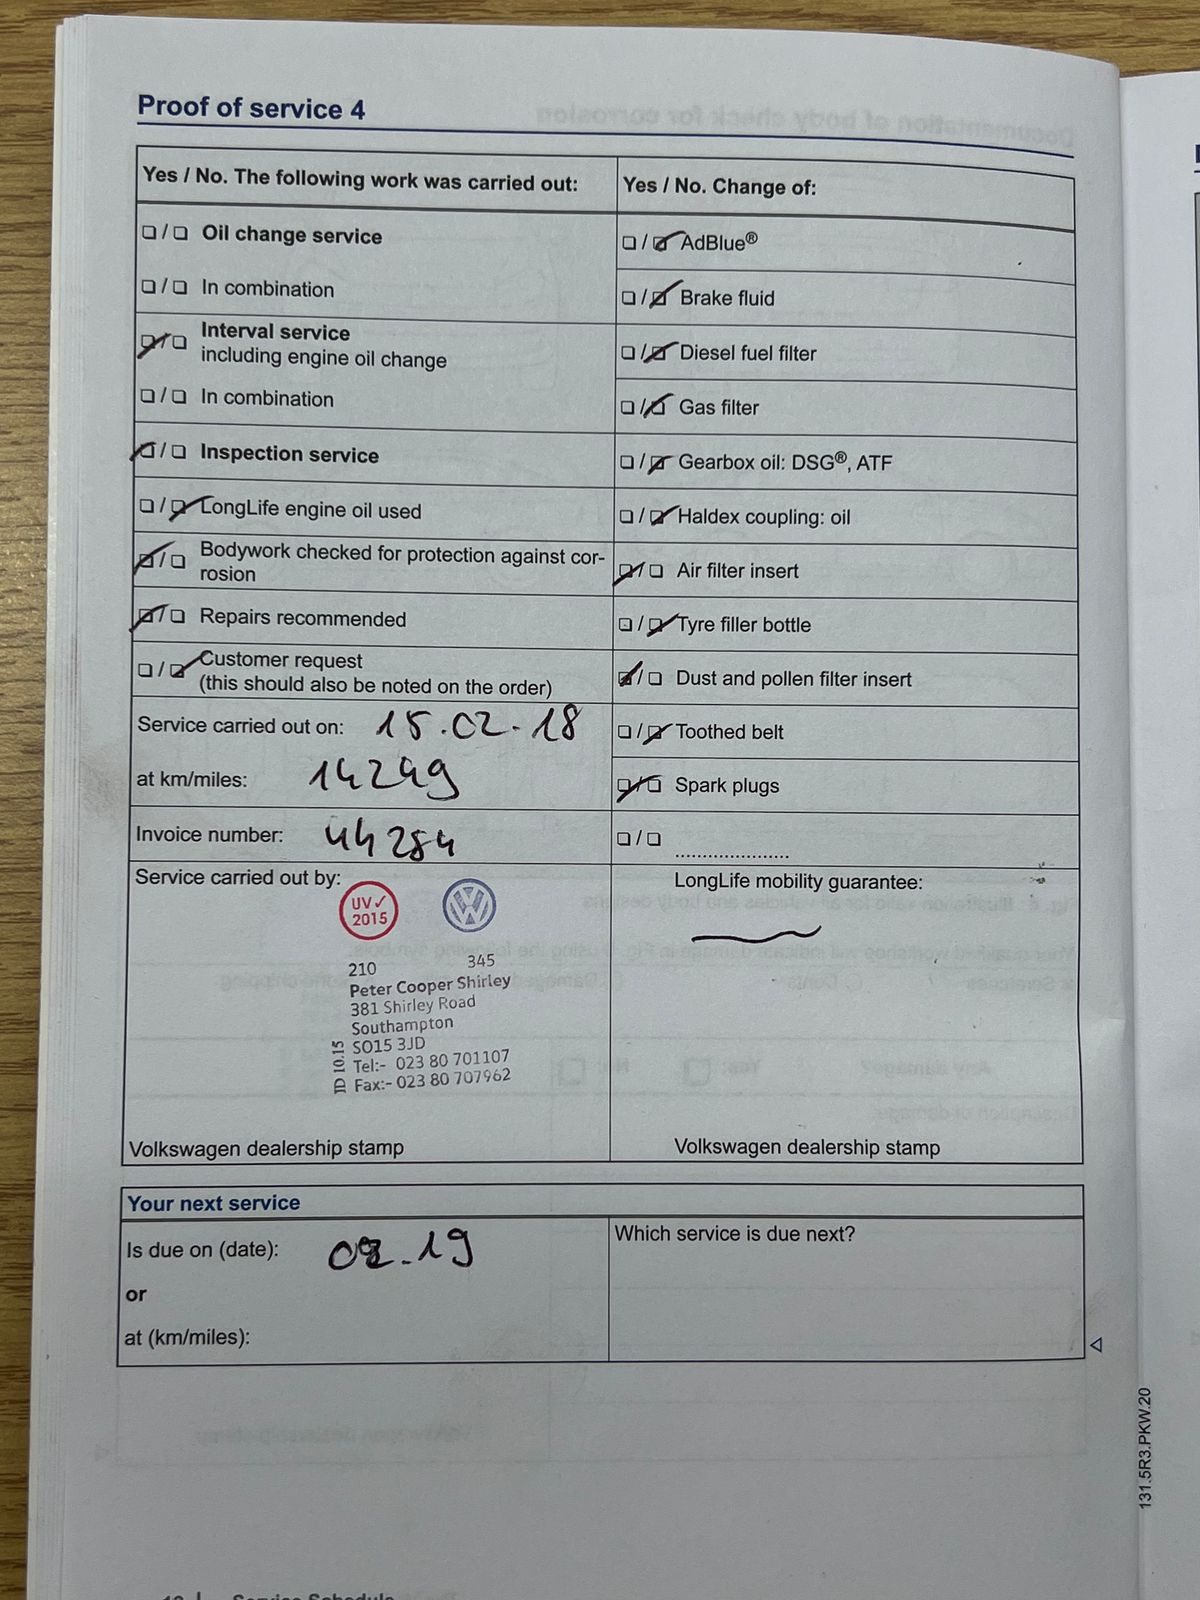 Proof of service 4
Yes / No. The following work was carried out:
☐ / ☐ Oil change service
☐ / ☐ In combination
☑ / ☐ Interval service
including engine oil change
☐ / ☐ In combination
☑ / ☐ Inspection service
☐ / ☑ LongLife engine oil used
☑ / ☐ Bodywork checked for protection against cor-
rosion
☑ / ☐ Repairs recommended
☐ / ☑ Customer request
(this should also be noted on the order)
Service carried out on: 15.02.18
at km/miles: 14249
Invoice number: 44284
Yes / No. Change of:
☐ / ☑ AdBlue®
☐ / ☑ Brake fluid
☐ / ☑ Diesel fuel filter
☐ / ☑ Gas filter
☐ / ☑ Gearbox oil: DSG®, ATF
☐ / ☑ Haldex coupling: oil
☑ / ☐ Air filter insert
☐ / ☑ Tyre filler bottle
☑ / ☐ Dust and pollen filter insert
☐ / ☑ Toothed belt
☑ / ☐ Spark plugs
☐ / ☐ .....................
Service carried out by:
UV✓
2015
VW
210 345
Peter Cooper Shirley
381 Shirley Road
Southampton
SO15 3JD
Tel:- 023 80 701107
Fax:- 023 80 707962
JD 10.15
Volkswagen dealership stamp
LongLife mobility guarantee:
Volkswagen dealership stamp
Your next service
Is due on (date): 02.19
or
at (km/miles):
Which service is due next?
131.5R3.PKW.20
Service Schedule